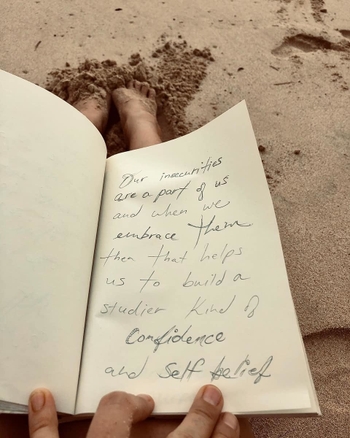 Our insecurities
are a part of us
and when we
embrace them
then that helps
us to build a
studier kind of
Confidence
and self belief